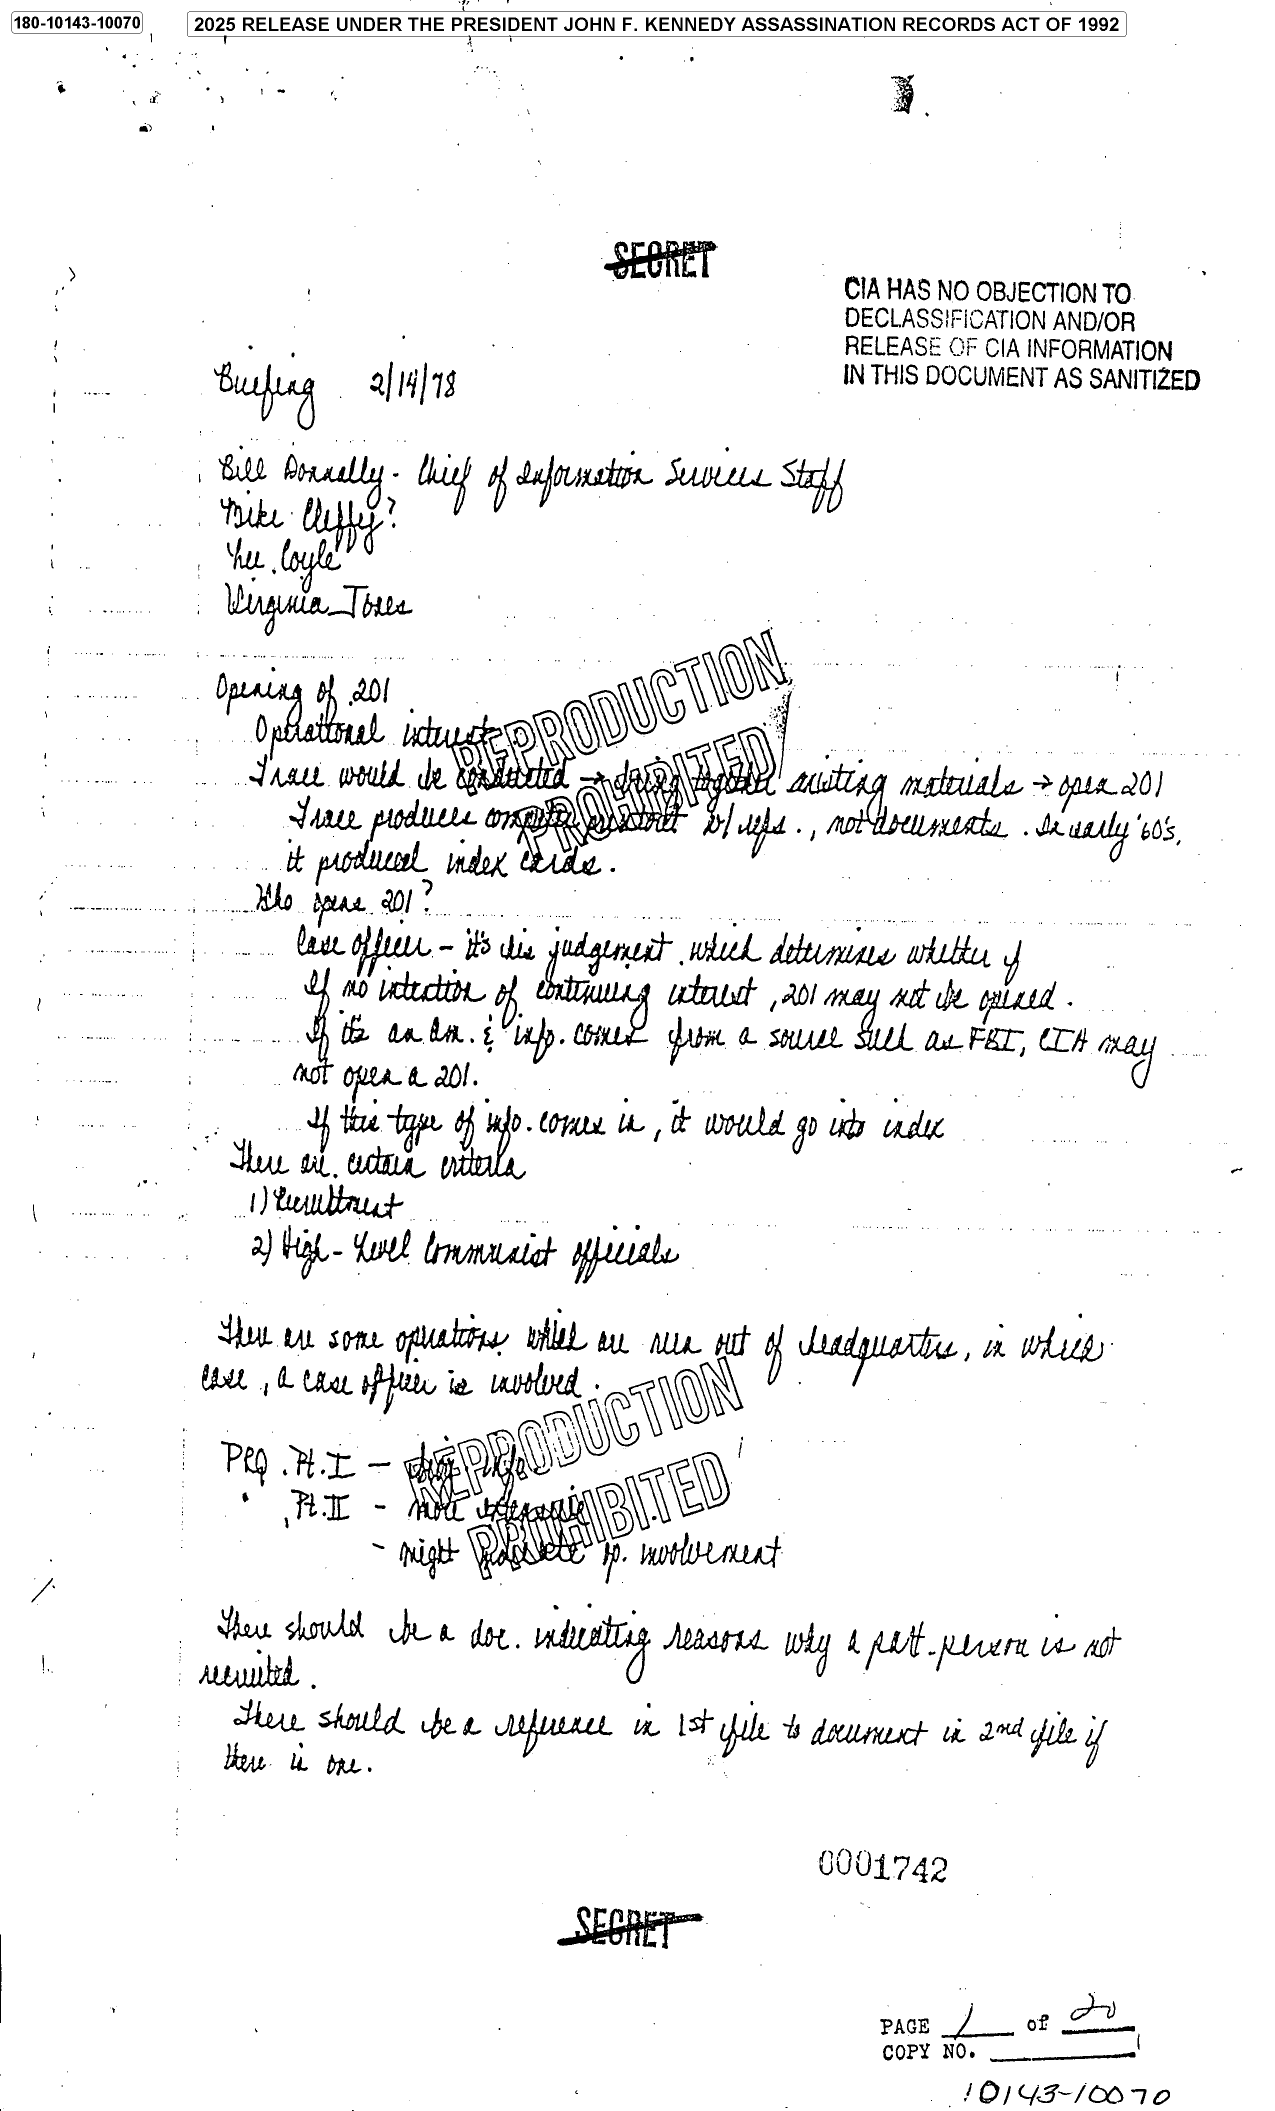 180-10143-10070
2025 RELEASE UNDER THE PRESIDENT JOHN F. KENNEDY ASSASSINATION RECORDS ACT OF 1992
SECRET
CIA HAS NO OBJECTION TO
DECLASSIFICATION AND/OR
RELEASE OF CIA INFORMATION
IN THIS DOCUMENT AS SANITIZED
Briefing 2/14/78
Bill Donnally - Chief of Information Services Staff
Mike Cleffy?
Lee Coyle
Virginia Tones
REPRODUCTION
PROHIBITED
Opening of 201
Operational interest
Trace would be conducted → bring together existing materials → open 201
Trace produces computer printout w/ refs., not documents. In early '60's,
it produced index cards.
Who opens 201?
Case officer - it's his judgement which determines whether if
If no intention of continuing interest, 201 may not be opened.
If it's an Am. & info. comes from a source such as FBI, CIA may
not open a 201.
If this type of info. comes in, it would go into index
There are certain criteria
1) Recruitment
2) High-Level Communist officials
There are some operations which are run out of headquarters, in which
case, a case officer is involved.
REPRODUCTION
PROHIBITED
PRQ Pt. I - biog. info.
Pt. II - more extensive
- might indicate op. involvement
There should be a doc. indicating reasons why a part. person is not
recruited.
There should be a reference in 1st file to document in 2nd file if
there is one.
0001742
SECRET
PAGE 1 of 20
COPY NO.
10143-10070